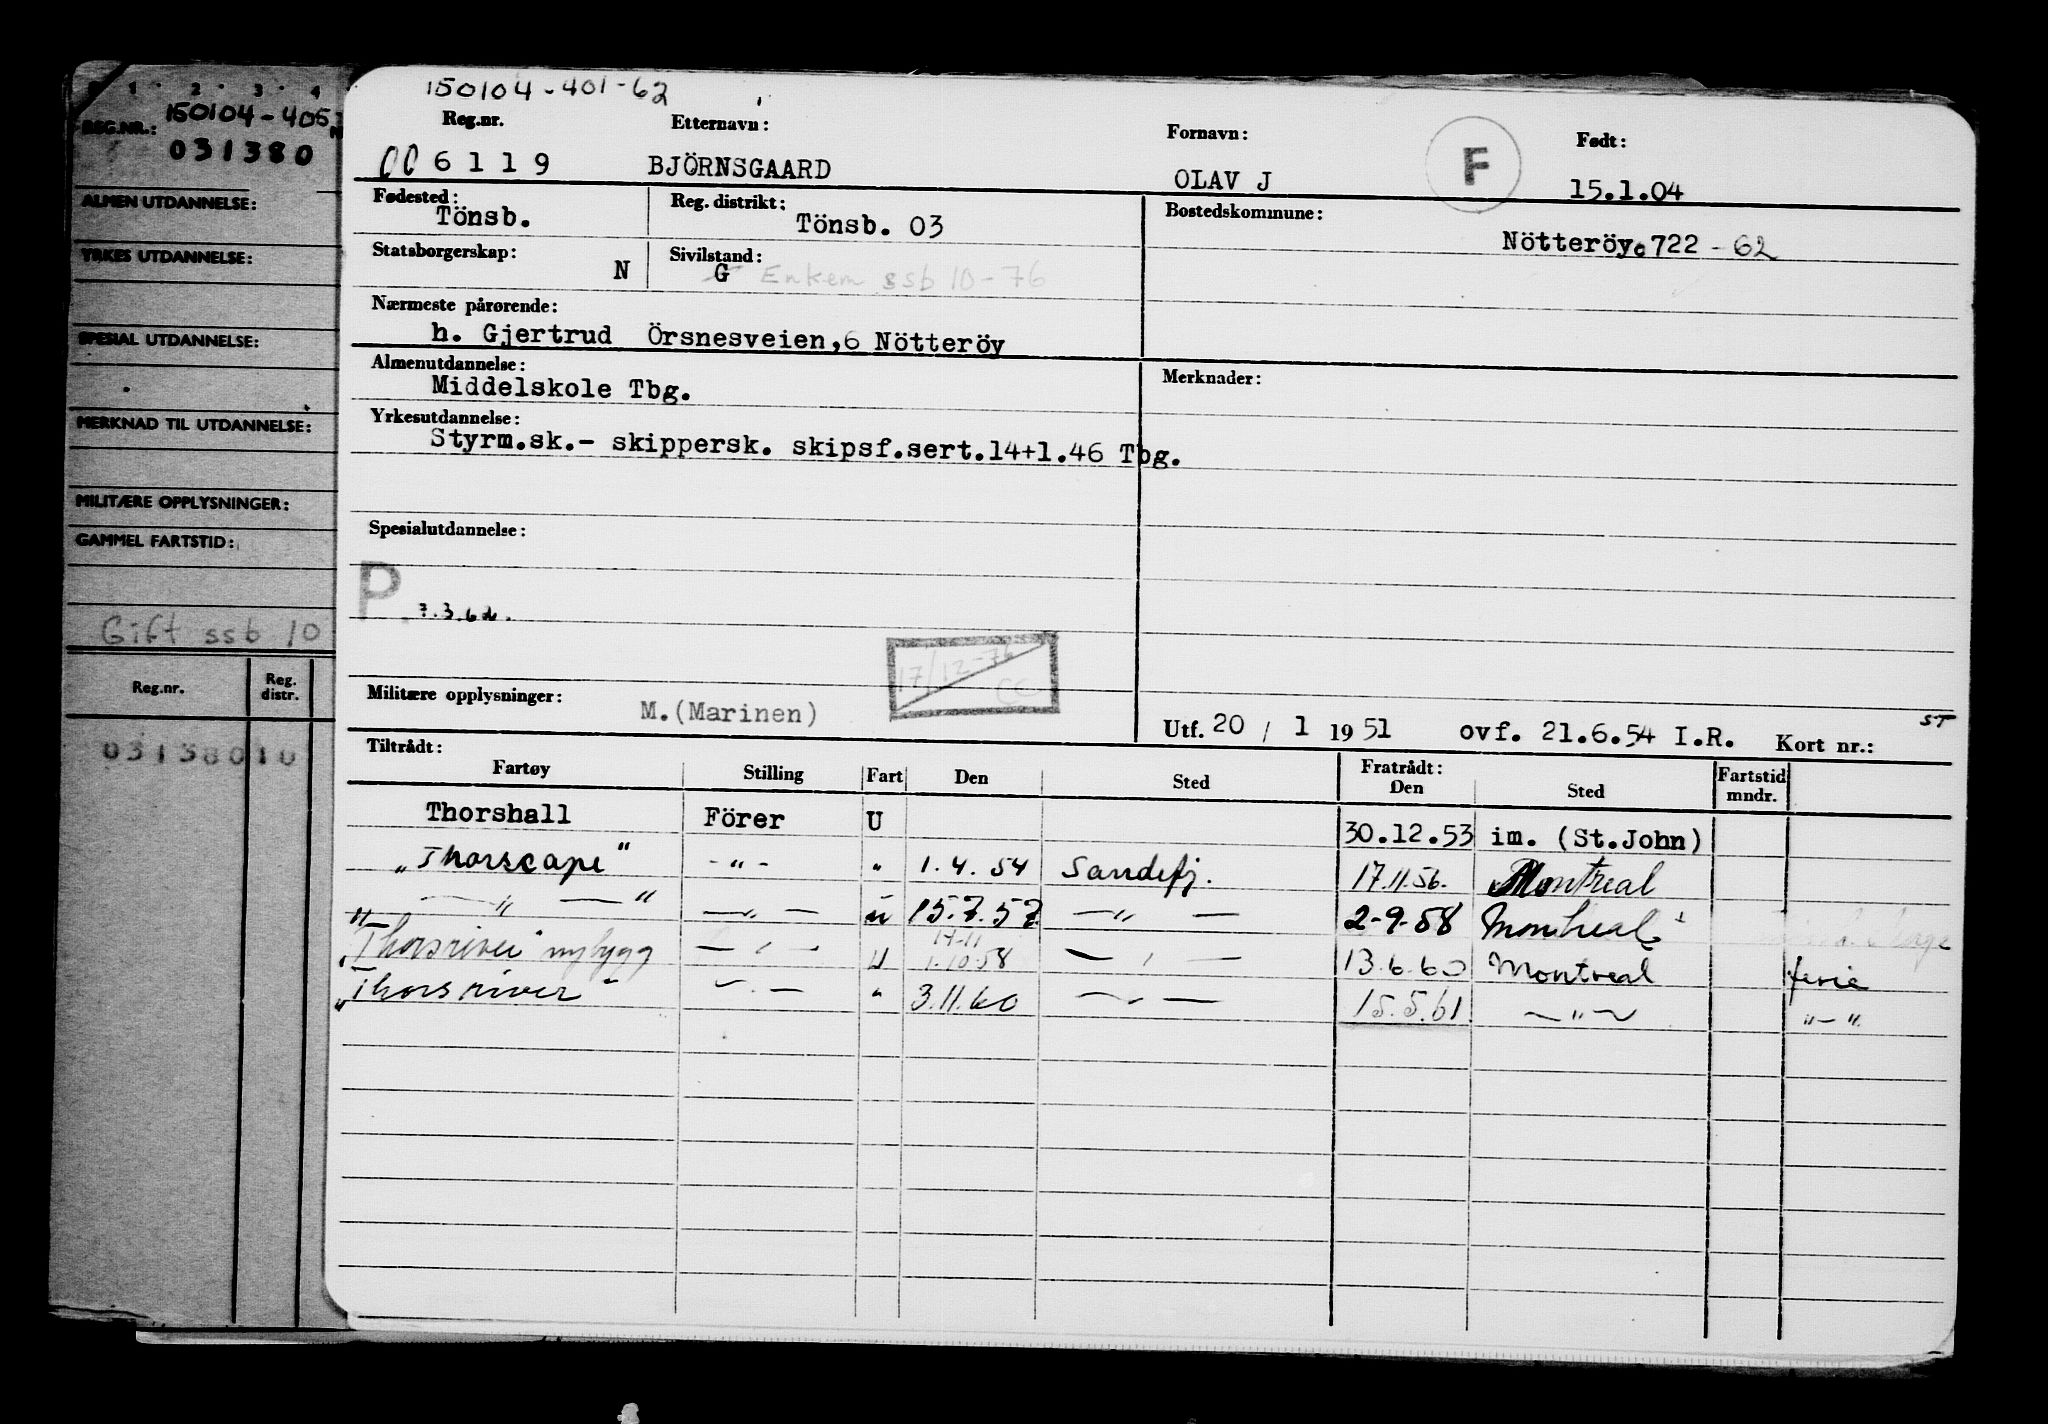 1 2 3 4
REG.NR.: 150104-405
031380
ALMEN UTDANNELSE:
YRKES UTDANNELSE:
SPESIAL UTDANNELSE:
MERKNAD TIL UTDANNELSE:
MILITÆRE OPPLYSNINGER:
GAMMEL FARTSTID:
Gift ssb 10
Reg.nr. Reg. distr.
03138010
150104-401-62
Reg.nr. Etternavn: Fornavn: Født:
006119 BJÖRNSGAARD OLAV J F 15.1.04
Fødested: Reg. distrikt: Bostedskommune:
Tönsb. Tönsb. 03 Nötteröy 722 - 62
Statsborgerskap: N Sivilstand: G Enkem ssb 10-76
Nærmeste pårørende:
h. Gjertrud Örsnesveien,6 Nötteröy
Almenutdannelse: Merknader:
Middelskole Tbg.
Yrkesutdannelse:
Styrm.sk.- skippersk. skipsf.sert.14+1.46 Tbg.
Spesialutdannelse:
P 7.3.62.
17/12-76 CC
Militære opplysninger: M.(Marinen)
Utf. 20 / 1 1951 ovf. 21.6.54 I.R. Kort nr.: ST
Tiltrådt: Fratrådt:
Fartøy Stilling Fart Den Sted Den Sted Fartstid mndr.
Thorshall Förer U 30.12.53 im. (St.John)
"Thorscape" -"- " 1.4.54 Sandefj. 17.11.56. Montreal
"—"—" —"— u 15.7.57 —"— 2-9.58 Montreal
"Thorsriver" nybygg —"— U 17-11 1.10.58 —"— 13.6.60 Montreal ferie
"Thorsriver" —"— " 3.11.60 —"— 15.5.61. —"— "—"